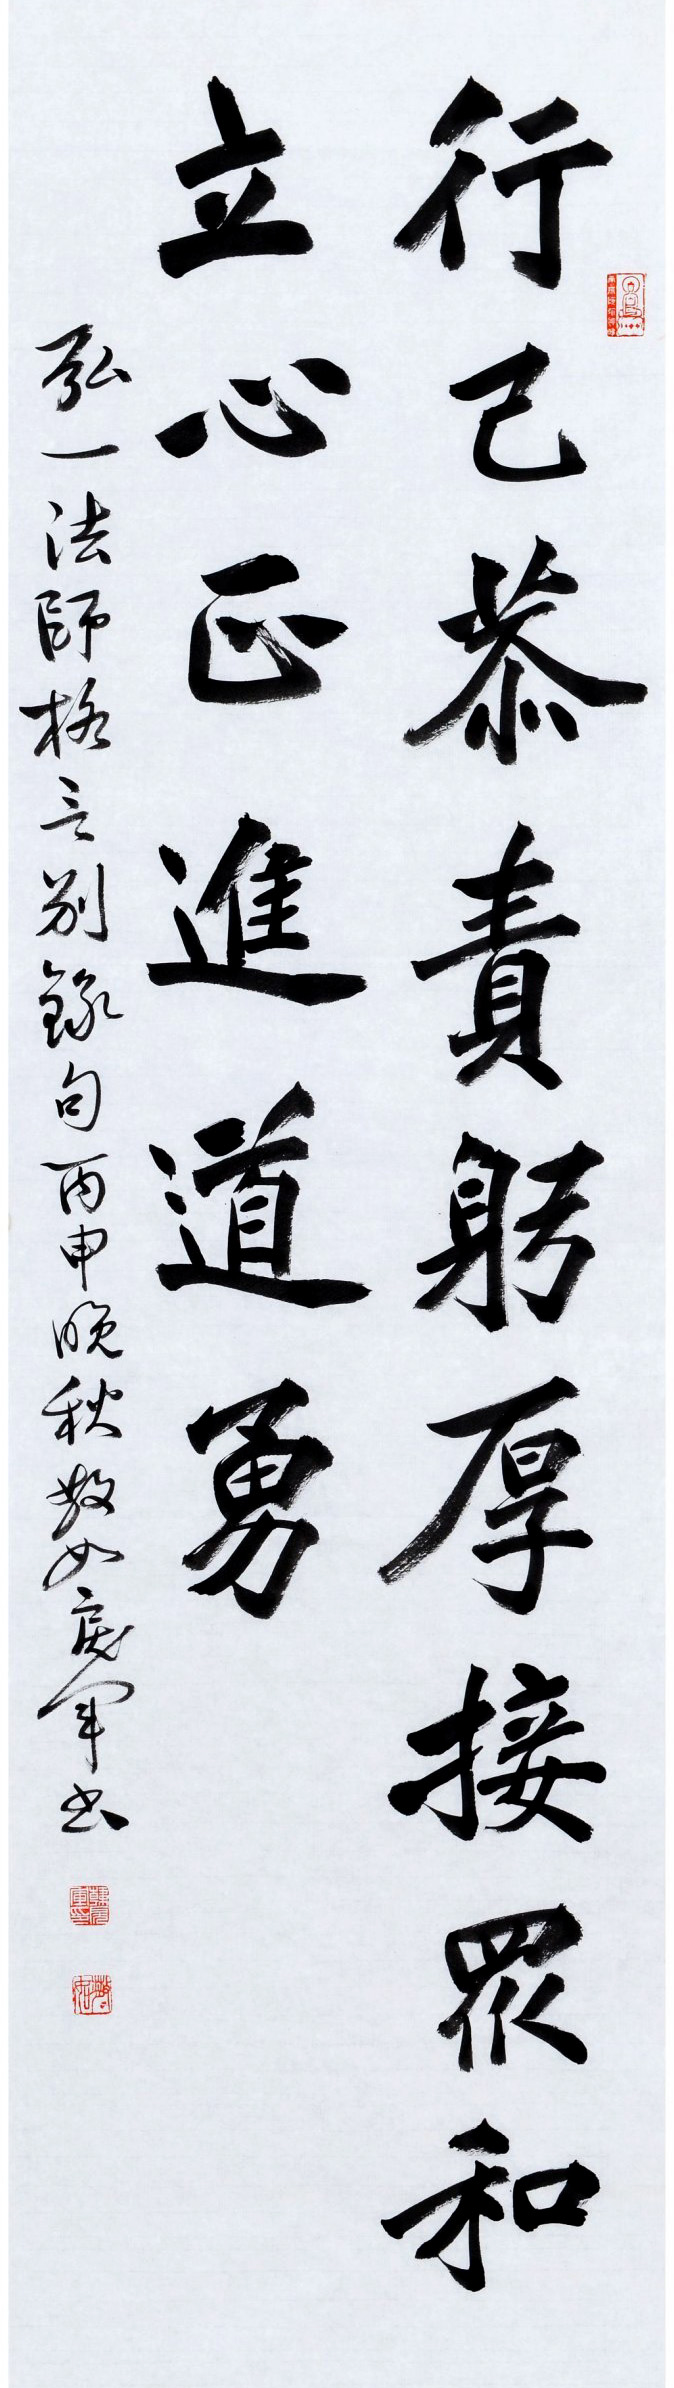 行己恭責躬厚接眾和
立心正進道勇
弘一法師格言別錄句丙申晚秋敬如展軍書